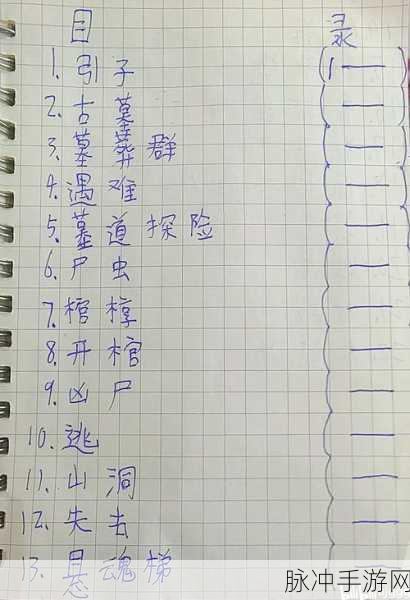 目 录
1. 引子 (1 —
2. 古墓 ( —
3. 墓葬群 ( —
4. 遇难 ( —
5. 墓道探险 ( —
6. 尸虫 ( —
7. 棺椁 ( —
8. 开棺 ( —
9. 凶尸 ( —
10. 逃 ( —
11. 山洞 ( —
12. 失去 ( —
13. 悬魂梯
脉冲手游网